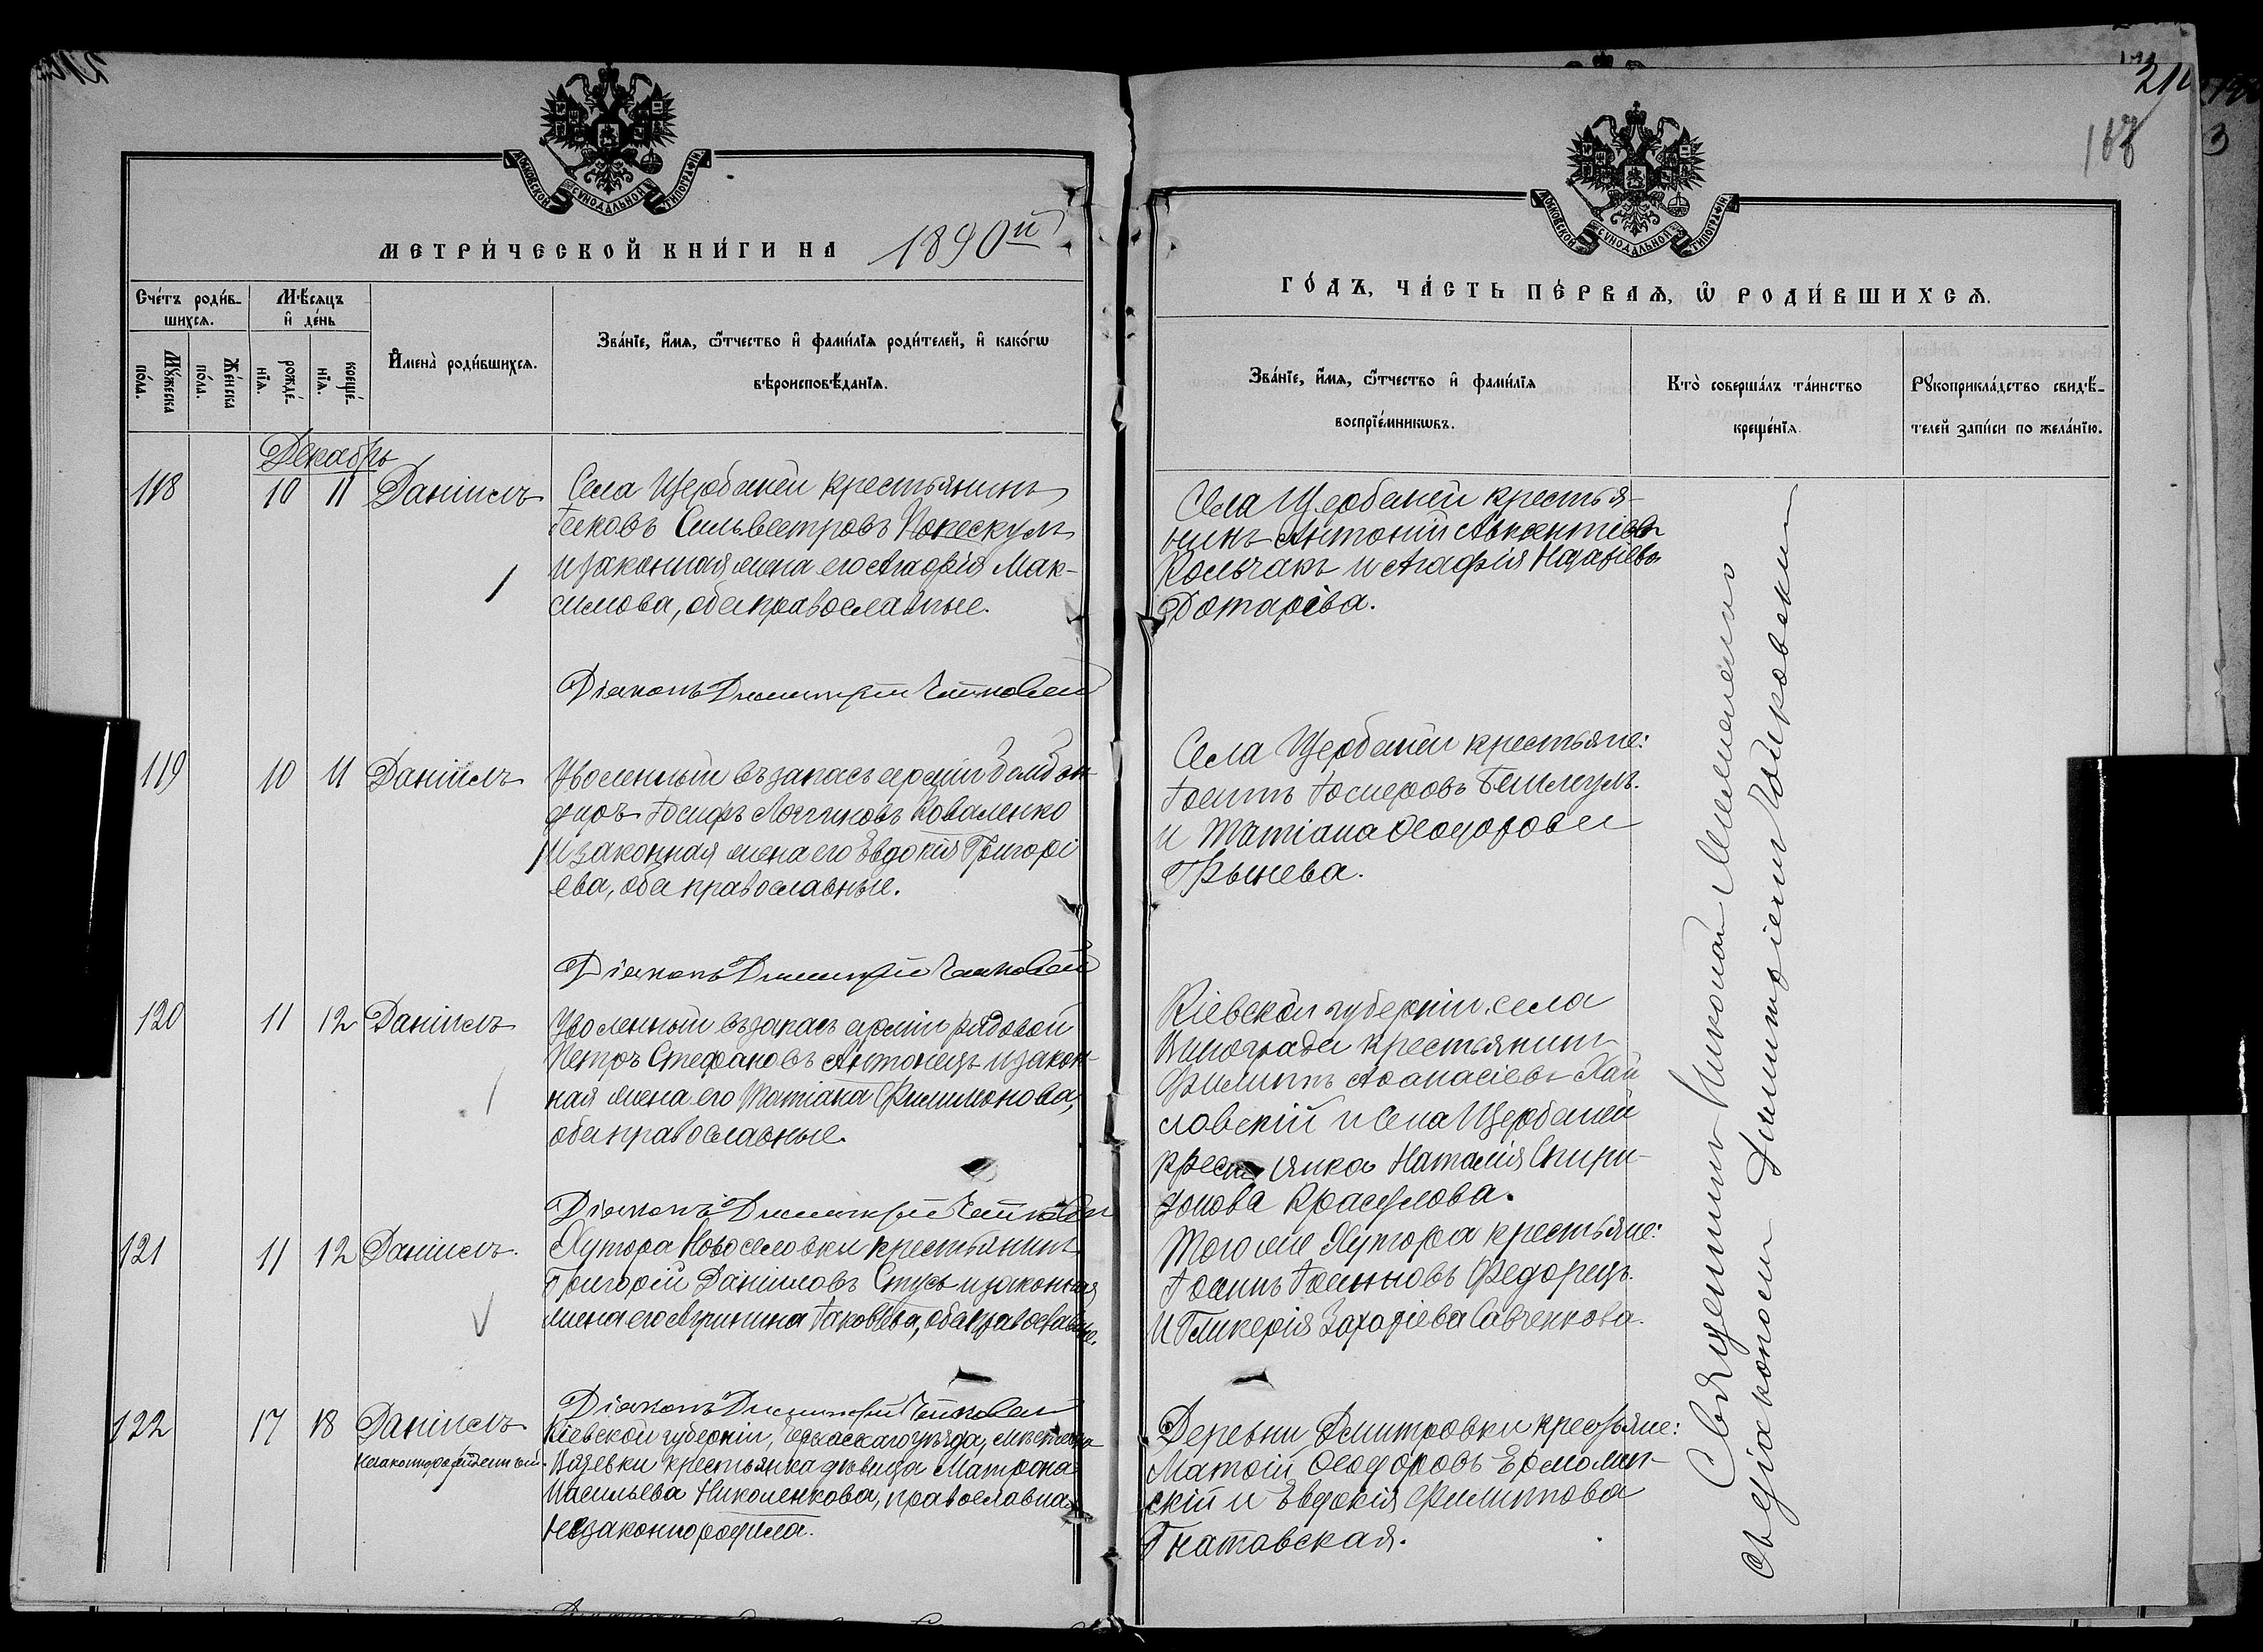 МОСКОВСКОЙ СѴНОДАЛЬНОЙ ТИПОГРАФІИ.
МЕТРИ́ЧЕСКОЙ КНИ́ГИ НА 1890й
Сче́тъ роди́в-
шихсѧ.
Мꙋ́жеска
по́ла.
Же́нска
по́ла.
Мѣ́сѧцъ
и҆ де́нь
рожде́-
нїѧ.
креще́-
нїѧ.
И҆мена̀ роди́вшихсѧ.
Зва́нїе, и҆́мѧ, ѻ҆́тчество и҆ фами́лїѧ роди́телей, и҆ како́гѡ
вѣроисповѣ́данїѧ.
Декабрь
118 10 11 Даніилъ
Села Щербаней крестьянинъ
Іаковъ Сильвестровъ Попескулъ
и законная жена его Агафія Мак-
симова, оба православные.
Діаконъ Димитрій
119 10 11 Даніилъ
Уволенный въ запасъ арміи бомбон-
диръ Іосифъ Логгиновъ Коваленко
и законная жена его Евдокія Григорі
ева, оба православные.
Діаконъ Димитрій
120 11 12 Даніилъ
Уволенный въ запасъ арміи рядовой
Петръ Стефановъ Антонецъ и закон-
ная жена его Татіана Филимонова,
оба православные.
Діаконъ Димитрій
121 11 12 Даніилъ.
Хутора Новоселовки крестьянинъ
Григорій Даніиловъ Стусь и законная
жена его Агрипина Іаковлева, оба православные.
Діаконъ Димитрій
122 17 18 Даніилъ
незаконнорожденный.
Кіевской губерніи, Черкаскаго уѣзда, мѣстечка
Вязевки крестьянка дѣвица Матрона
Васильева Николенкова, православная
незаконно родила.
МОСКОВСКОЙ СѴНОДАЛЬНОЙ ТИПОГРАФІИ.
ГО́ДЪ, ЧА́СТЬ ПЕ́РВАѦ, Ѡ҆ РОДИ́ВШИХСѦ.
Зва́нїе, и҆́мѧ, ѻ҆́тчество и҆ фами́лїѧ
воспрїе́мникѡвъ.
Кто̀ соверша́лъ та́инство
креще́нїѧ.
Рꙋкоприкла́дство свидѣ́-
телей за́писи по жела́нїю.
Села Щербаней крестья-
нинъ Антоній Авксентіевъ
Колчакъ и Агафія Назаріева
Дотарева.
Села Щербаней крестьяне:
Іоаннъ Іосифовъ
и Татіана Ѳеодорова
Грынева.
Кіевской губерніи, села
Винограда крестьянинъ
Филиппъ Аѳанасіевъ Хай
ловскій и села Щербаней
крестьянка Наталія Спири-
донова
Того же Хутора крестьяне:
Іоаннъ Іоанновъ Федорецъ.
и Гликерія Захаріева Савченкова.
Деревни Дмитровки крестьяне:
Матѳій Ѳеодоровъ Ермолин-
скій и Евдокія Филиппова
Гнатовская.
Священникъ Николай
съ діакономъ Димитріемъ